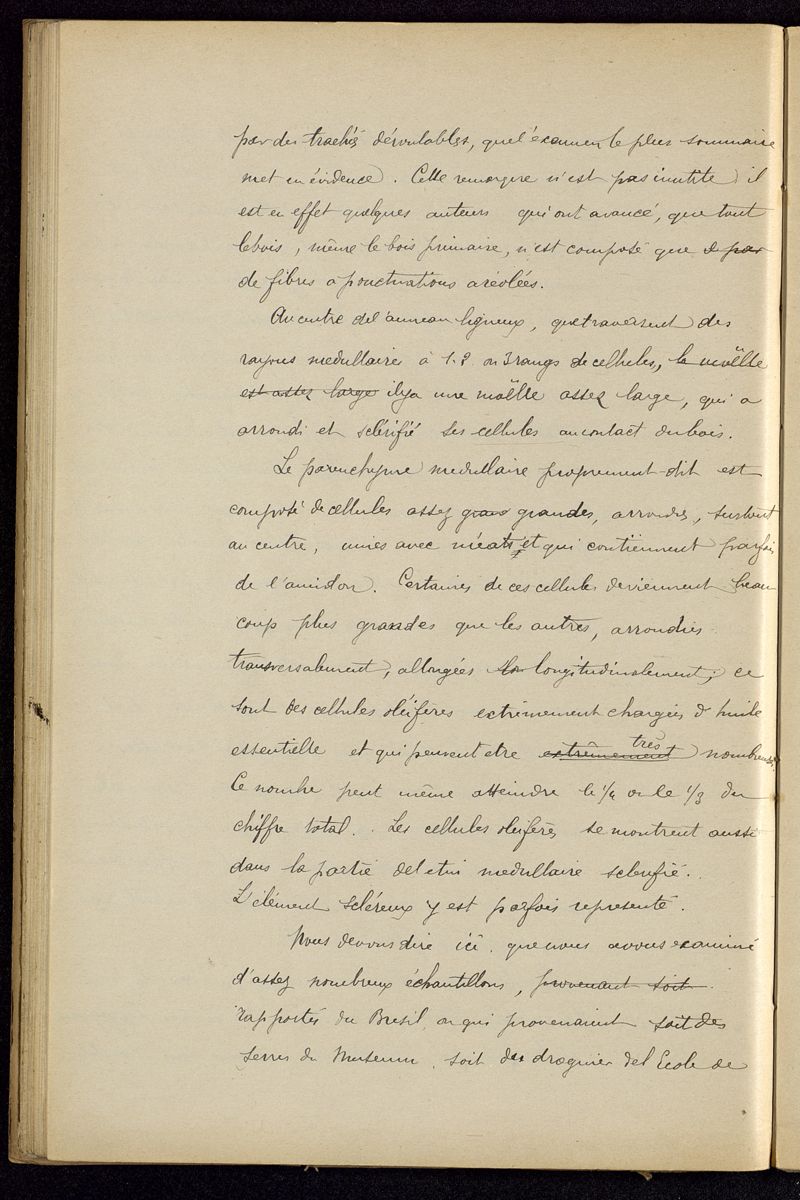 par des trachés déroulables, que l'examen le plus sommaire
met en évidence. Cette remarque n'est pas inutile, il
est en effet quelques auteurs qui ont avancé, que tout
le bois, même le bois primaire, n'est composé que d par
de fibres a ponctuations aréolées.
Au centre de l'anneau ligneux, que traversent des
rayons medullaires à 1. 2 ou 3 rangs de cellules, la moëlle
est assez large il y a une moëlle assez large, qui a
arrondi et sclérifié ses cellules au contact du bois.
Le parenchyme medullaire proprement-dit est
composé de cellules assez gran grandes, arrondies, surtout
au centre, unies avec méats, et qui contiennent parfois
de l'amidon. Certaines de ces cellules deviennent beau
coup plus grandes que les autres, arrondies
transversalement, allongées lon longitudinalement; ce
sont des cellules oléifères extrêmement chargées d'huile
essentielle et qui peuvent etre extrêmement très nombreuses.
Ce nombre peut même atteindre le 1/4 ou le 1/3 du
chiffre total. Les cellules oleifères se montrent aussi
dans la partie de l'etui medullaire sclerifié.
L'élément scléreux y est parfois representé.
Nous devons dire ici que nous avons examiné
d'assez nombreux échantillons, provenant soit
rapportés du Bresil, ou qui provenaient soit des
serres du Museum, soit du droguier de l'Ecole de